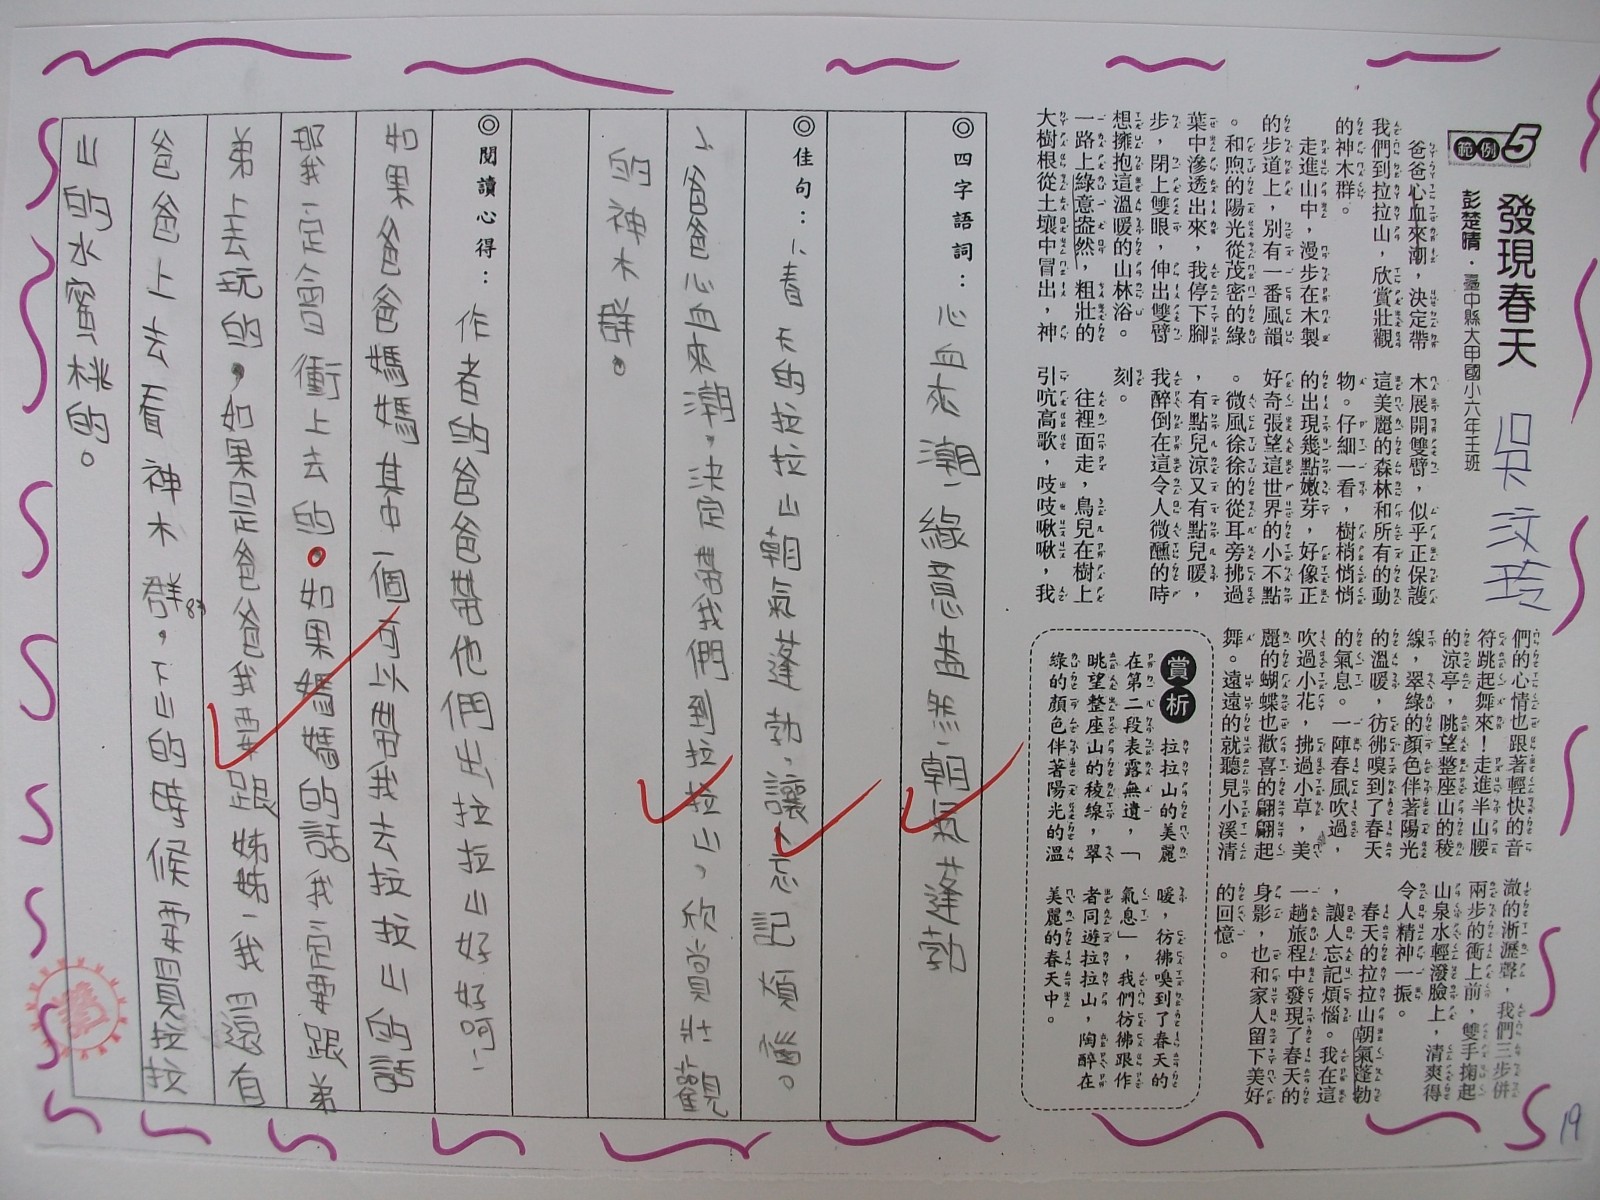 範例5
發現春天
彭楚晴・臺中縣大甲國小六年壬班
吳汶玲
爸爸心血來潮，決定帶
我們到拉拉山，欣賞壯觀
的神木群。
走進山中，漫步在木製
的步道上，別有一番風韻
。和煦的陽光從茂密的綠
葉中滲透出來，我停下腳
步，閉上雙眼，伸出雙臂
想擁抱這溫暖的山林浴。
一路上綠意盎然，粗壯的
大樹根從土壤中冒出，神
木展開雙臂，似乎正保護
這美麗的森林和所有的動
物。仔細一看，樹梢悄悄
的出現幾點嫩芽，好像正
好奇張望這世界的小不點
。微風徐徐的從耳旁拂過
，有點兒涼又有點兒暖，
我醉倒在這令人微醺的時
刻。
往裡面走，鳥兒在樹上
引吭高歌，吱吱啾啾，我
們的心情也跟著輕快的音
符跳起舞來！走進半山腰
的涼亭，眺望整座山的稜
線，翠綠的顏色伴著陽光
的溫暖，彷彿嗅到了春天
的氣息。一陣春風吹過，
吹過小花，拂過小草，美
麗的蝴蝶也歡喜的翩翩起
舞。遠遠的就聽見小溪清
澈的淅瀝聲，我們三步併
兩步的衝上前，雙手掬起
山泉水輕潑臉上，清爽得
令人精神一振。
春天的拉拉山朝氣蓬勃
，讓人忘記煩惱。我在這
一趟旅程中發現了春天的
身影，也和家人留下美好
的回憶。
賞析
拉拉山的美麗
在第二段表露無遺，「
眺望整座山的稜線，翠
綠的顏色伴著陽光的溫
暖，彷彿嗅到了春天的
氣息」，我們彷彿跟作
者同遊拉拉山，陶醉在
美麗的春天中。
◎四字語詞：心血來潮、綠意盎然、朝氣蓬勃
◎佳句：1、春天的拉拉山朝氣蓬勃，讓人忘記煩惱。
2、爸爸心血來潮，決定帶我們到拉拉山，欣賞壯觀
的神木群。
◎閱讀心得：作者的爸爸帶他們去拉拉山好好呵！
如果爸爸媽媽其中一個可以帶我去拉拉山的話
那我一定會衝上去的。如果媽媽的話我一定要跟弟
弟上去玩的，如果是爸爸我要跟姊姊、我還有
爸爸上去看神木群，下山的時候要買拉拉
山的水蜜桃的。
19